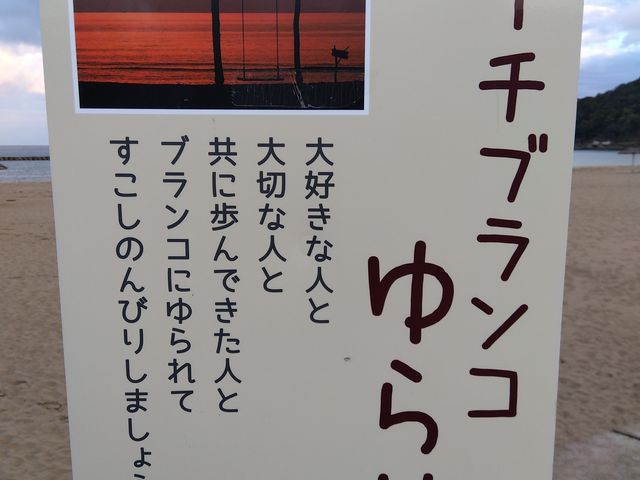 ーチブランコ
ゆら
大好きな人と
大切な人と
共に歩んできた人と
ブランコにゆられて
すこしのんびりしましょう